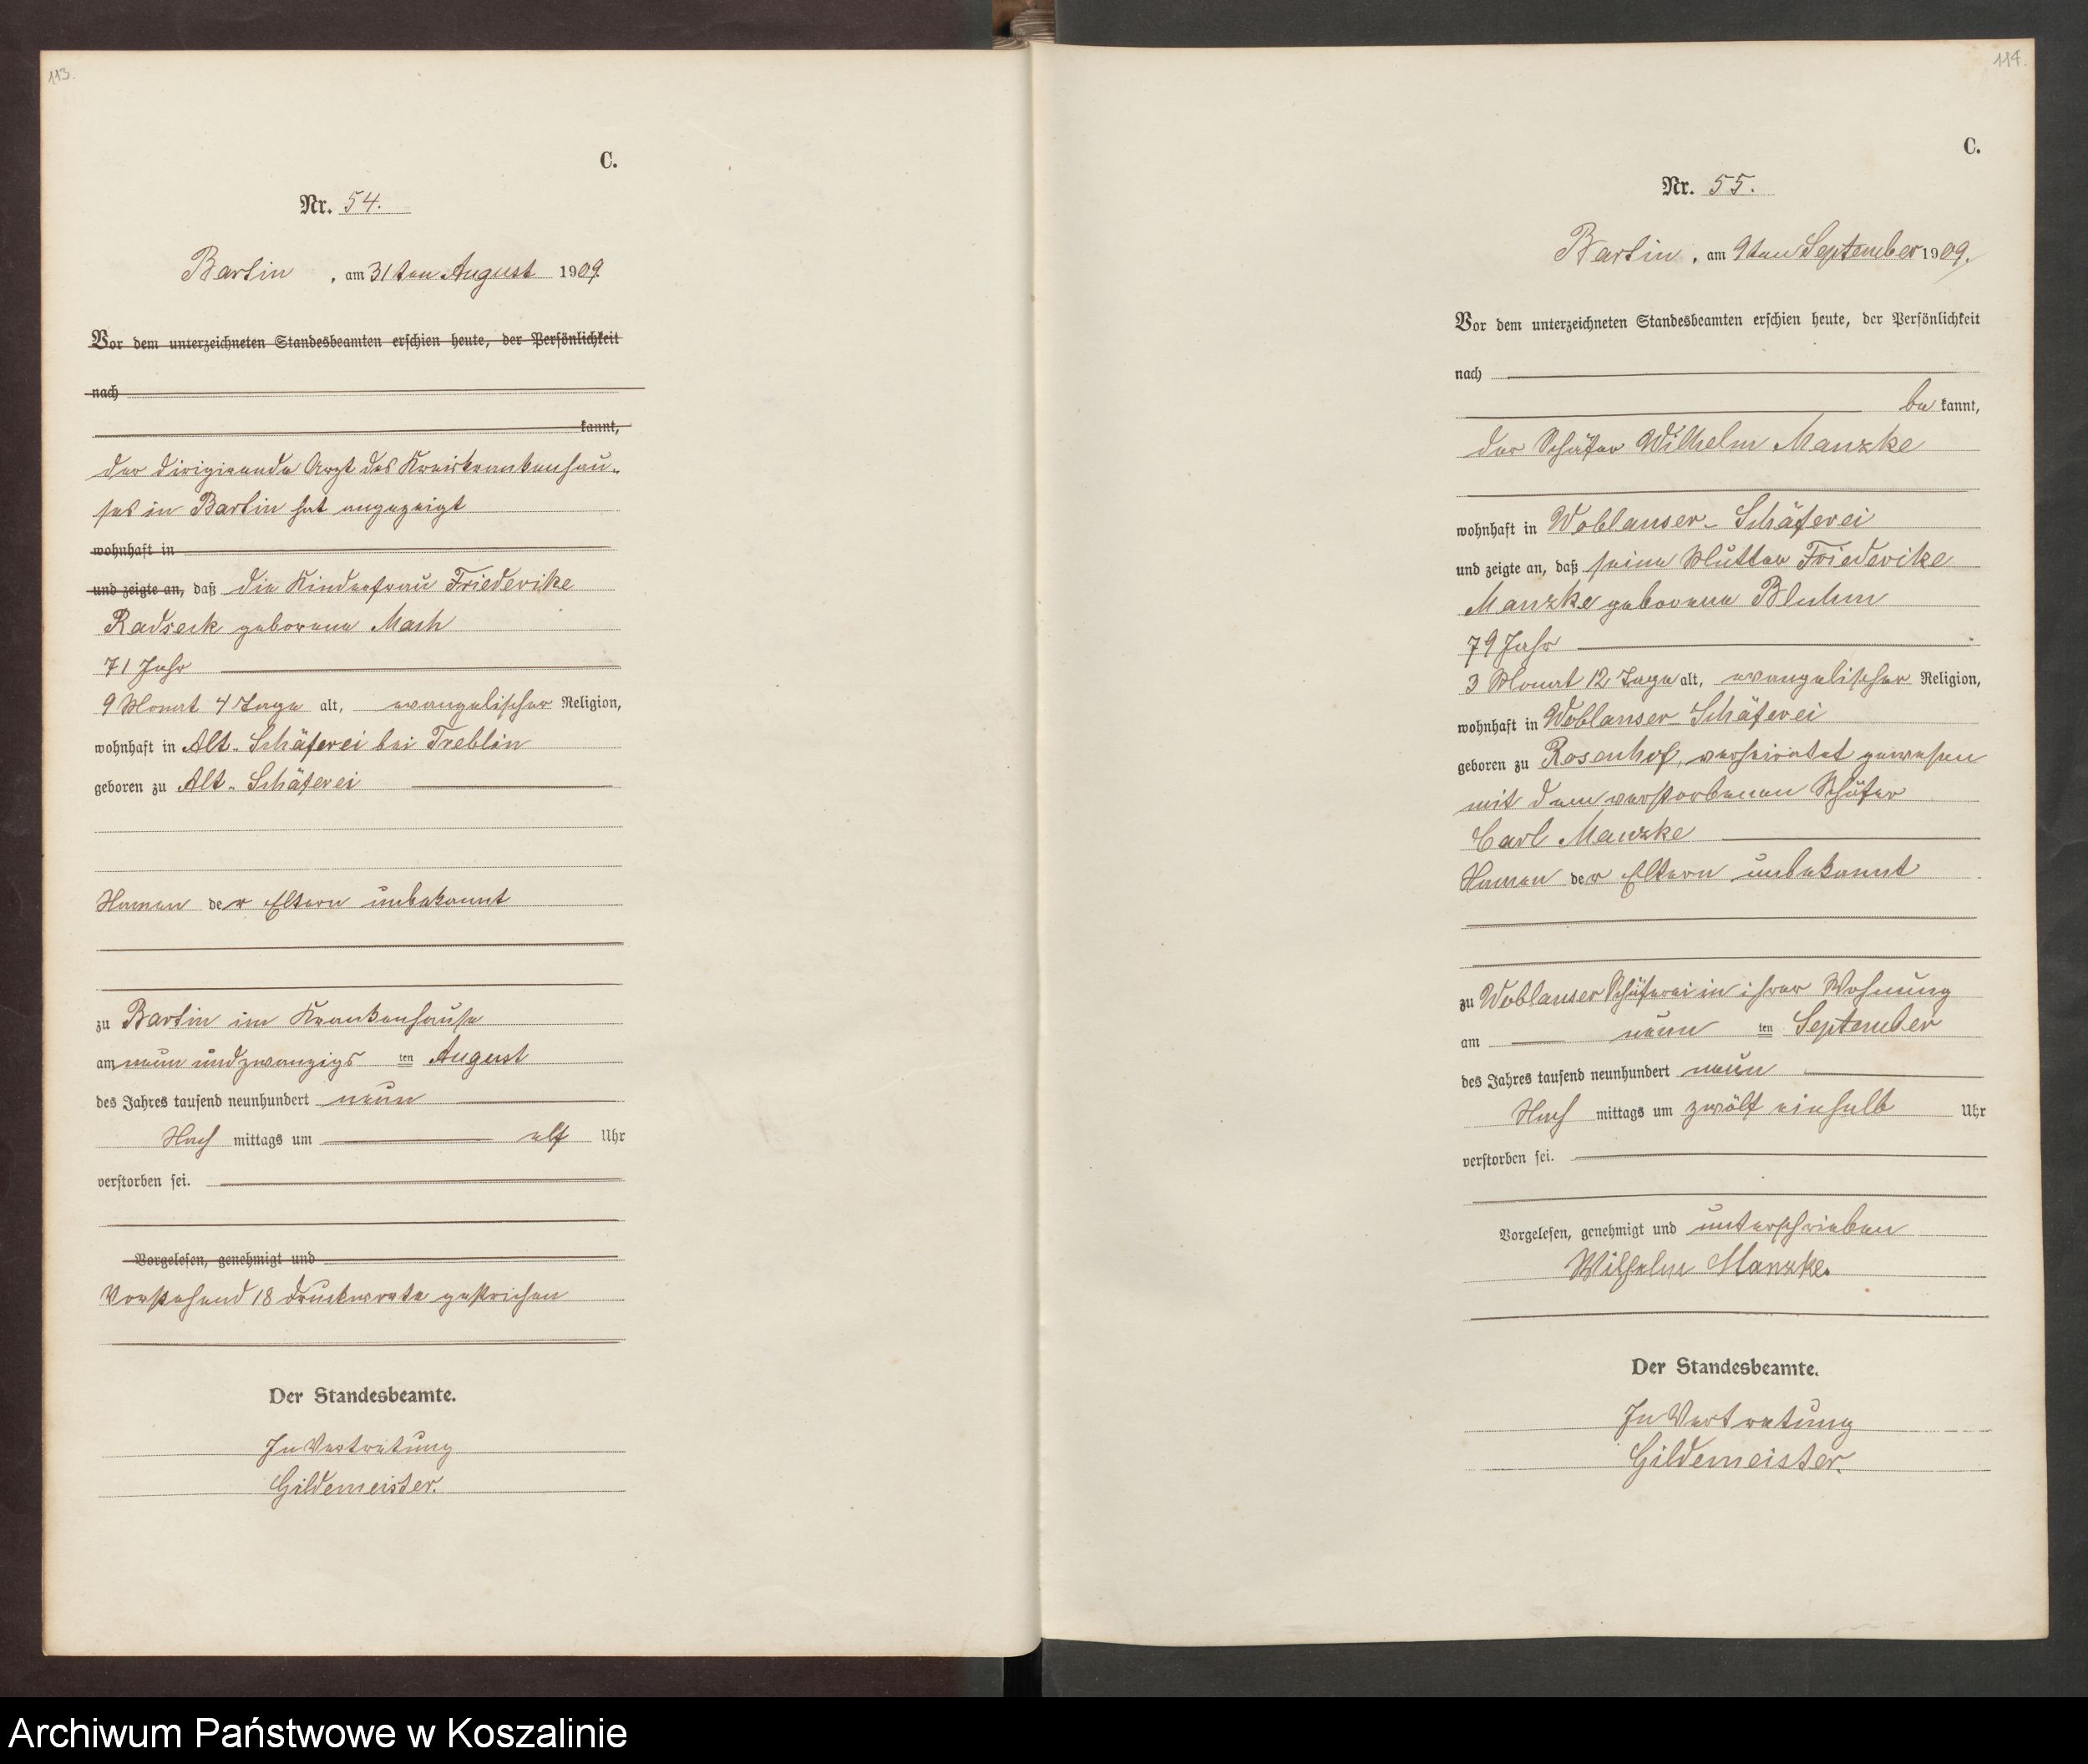 113.
C.
Nr. 54.
Bartin, am 31ten August 1909.
Vor dem unterzeichneten Standesbeamten erschien heute, der Persönlichkeit
nach
kannt,
der dirigierende Arzt des Kreiskrankenhau-
ses in Bartin hat angezeigt
wohnhaft in
und zeigte an, daß die Kinderfrau Friederike
Radseck geborene Mach
71 Jahr
9 Monat 4 Tage alt, evangelischer Religion,
wohnhaft in Alt-Schäferei bei Treblin
geboren zu Alt-Schäferei
Namen der Eltern unbekannt
zu Bartin im Krankenhause
am neunundzwanzigsten August
des Jahres tausend neunhundert neun
Nach mittags um elf Uhr
verstorben sei.
Vorgelesen, genehmigt und
Vorstehend 18 Druckworte gestrichen
Der Standesbeamte.
In Vertretung
Gildemeister.
114.
C.
Nr. 55.
Bartin, am 9ten September 1909.
Vor dem unterzeichneten Standesbeamten erschien heute, der Persönlichkeit
nach
be kannt,
der Schäfer Wilhelm Manzke
wohnhaft in Woblanser-Schäferei
und zeigte an, daß seine Mutter Friederike
Manzke geborene Bluhm
79 Jahr
3 Monat 12 Tage alt, evangelischer Religion,
wohnhaft in Woblanser Schäferei
geboren zu Rosenhof, verheiratet gewesen
mit dem verstorbenen Schäfer
Carl Manzke
Namen der Eltern unbekannt
zu Woblanser Schäferei in ihrer Wohnung
am neun ten September
des Jahres tausend neunhundert neun
Nach mittags um zwölf einhalb Uhr
verstorben sei.
Vorgelesen, genehmigt und unterschrieben
Wilhelm Manzke.
Der Standesbeamte.
In Vertretung
Gildemeister.
Archiwum Państwowe w Koszalinie